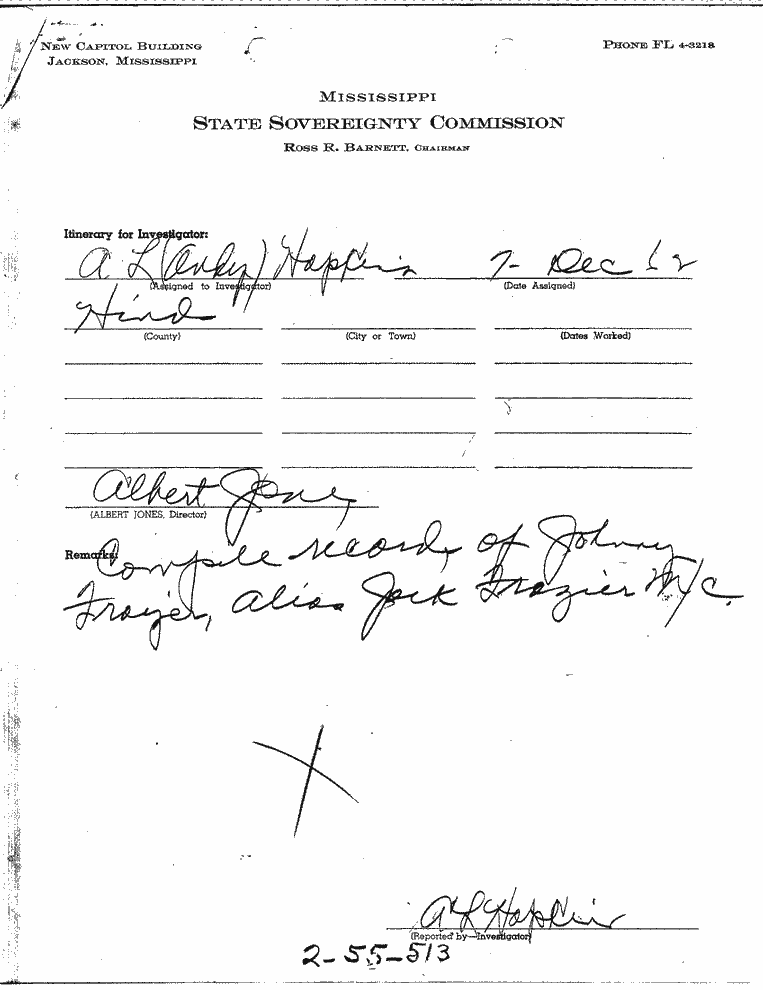 NEW CAPITOL BUILDING
JACKSON, MISSISSIPPI
PHONE FL 4-3218
MISSISSIPPI
STATE SOVEREIGNTY COMMISSION
ROSS R. BARNETT, CHAIRMAN
Itinerary for Investigator:
A L (Andy) Hopkins 7- Dec 62
(Assigned to Investigator) (Date Assigned)
Hind
(County) (City or Town) (Dates Worked)
Albert Jones
(ALBERT JONES, Director)
Remarks: Compile records of Johnny
Frazier, alias Jack Frazier M/C.
A L Hopkins
(Reported by—Investigator)
2-55-513